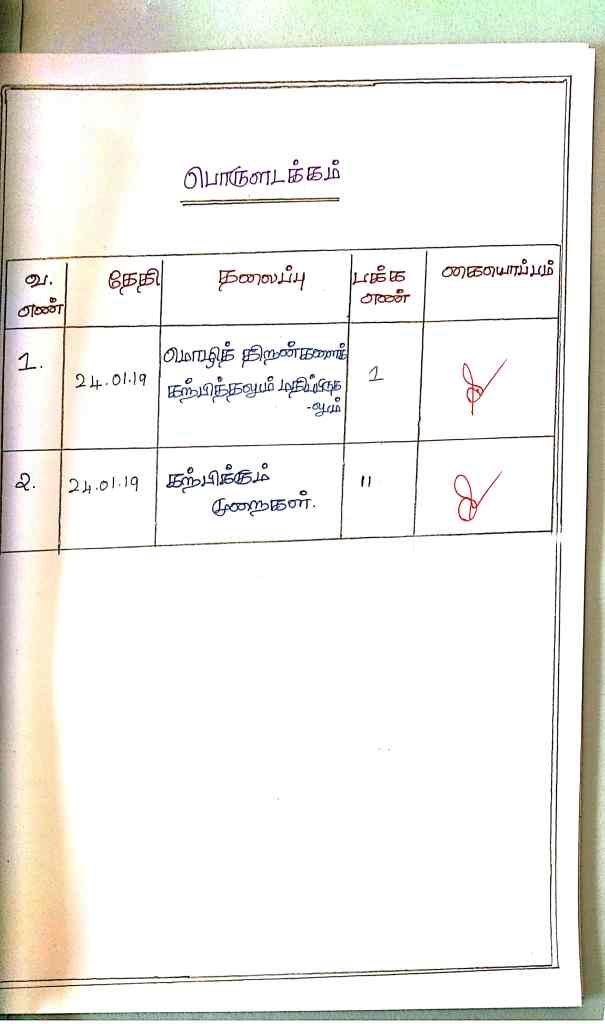 பொருளடக்கம்
வ. எண் தேதி தலைப்பு பக்க எண் கையொப்பம்
1. 24.01.19 மொழித் திறன்களைக் 1
கற்பித்தலும் மதிப்பிடுத
-லும்
2. 24.01.19 கற்பிக்கும் 11
முறைகள்.